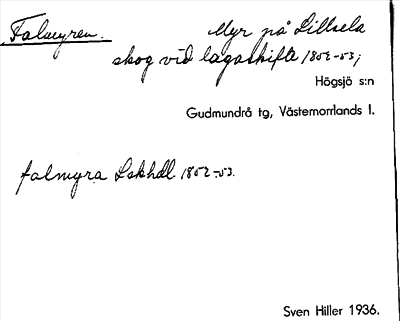 Falmyren. Myr på Lillsela
skog vid lagaskifte 1852-53;
Högsjö s:n
Gudmundrå tg, Västernorrlands l.
falmyra Lskhdl 1852-53.
Sven Hiller 1936.